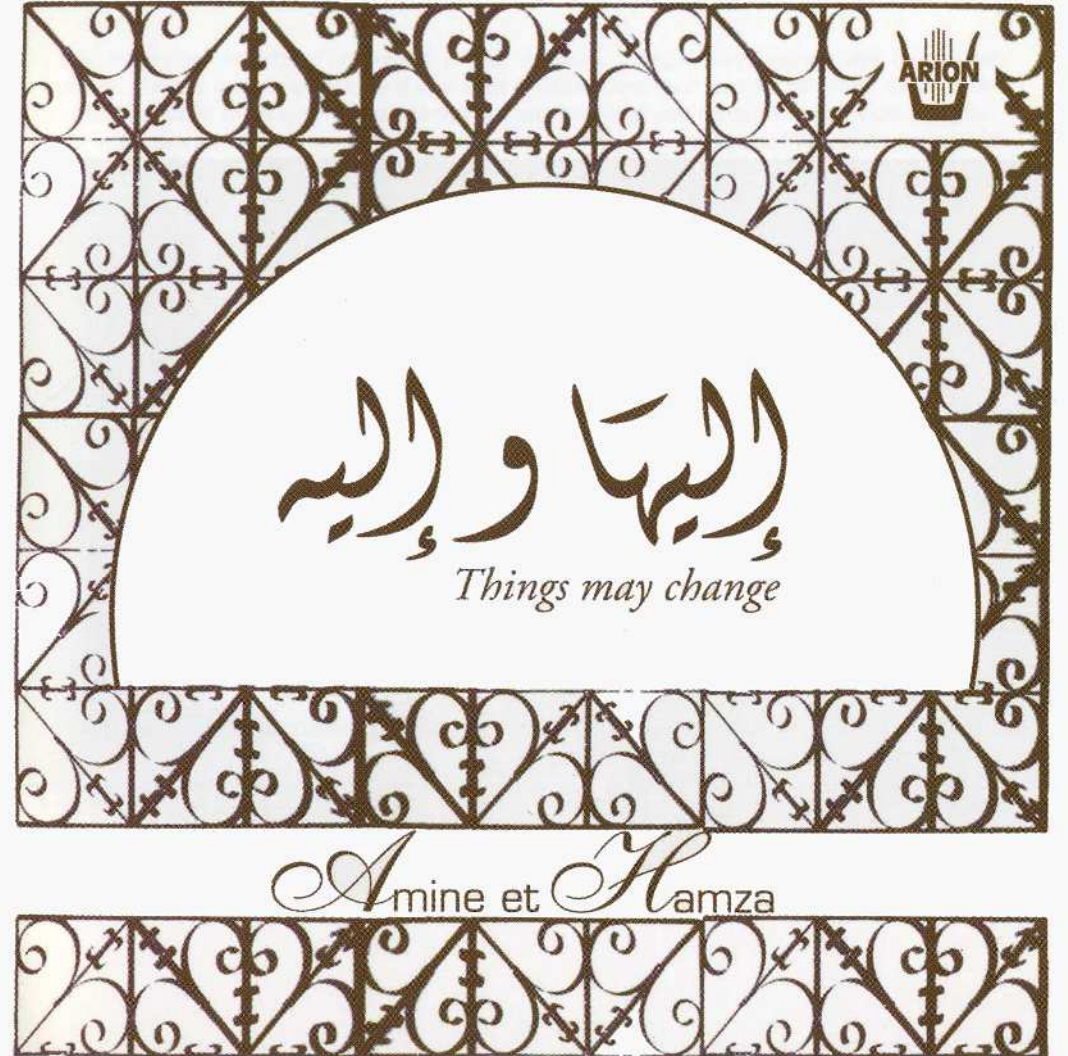 ARION
إليهَا و إليه
Things may change
Amine et Hamza